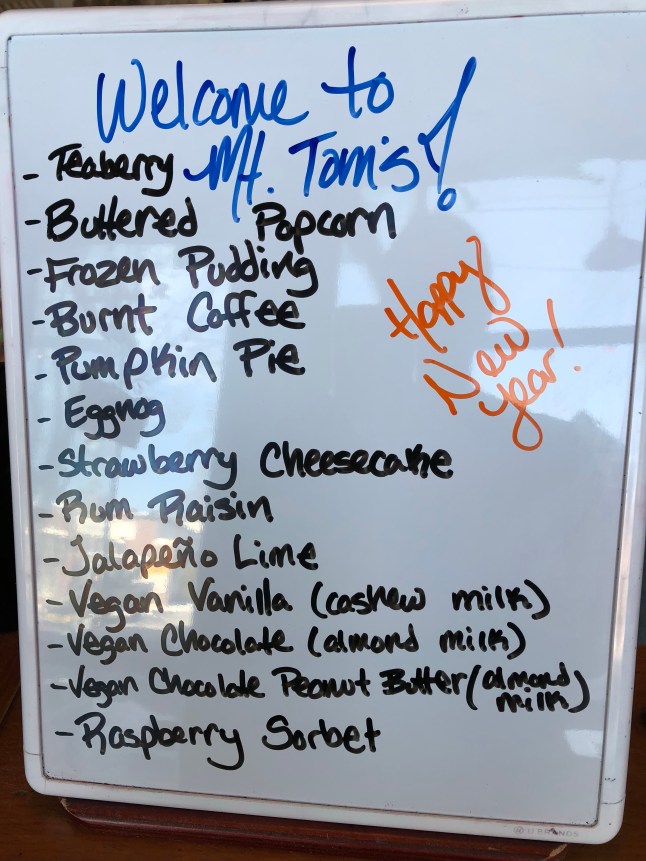 Welcome to
Mt. Tom's!
- Teaberry
- Buttered Popcorn
- Frozen Pudding
- Burnt Coffee
- Pumpkin Pie
- Eggnog
- Strawberry Cheesecake
- Rum Raisin
- Jalapeño Lime
- Vegan Vanilla (cashew milk)
- Vegan Chocolate (almond milk)
- Vegan Chocolate Peanut Butter (almond
milk)
- Raspberry Sorbet
Happy
New
Year!
U BRANDS